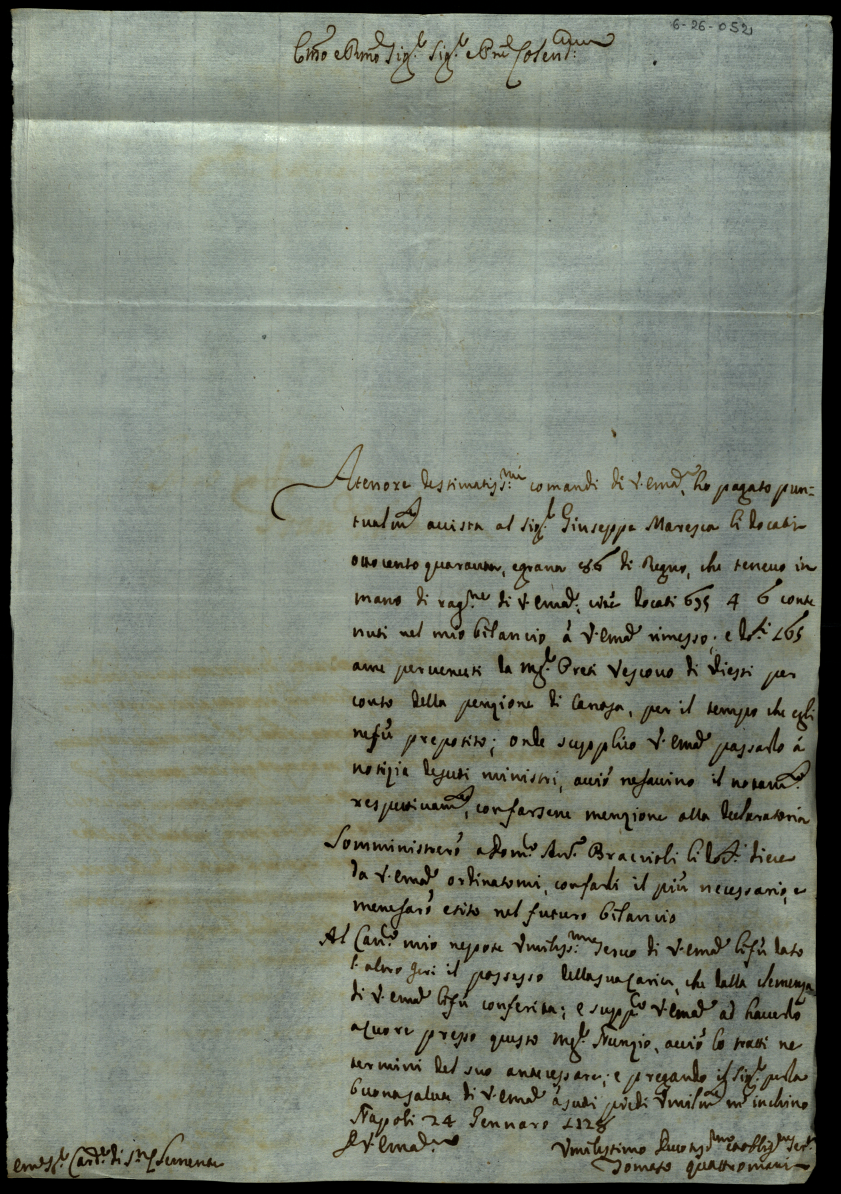 6-26-052
Em̃o e Rmõ Sig.r Sig.r e Prñ Colend:mo
A tenore de stimatiss:mi comandi di V. Emã, ho pagato pun=
tualm.te a vista al Sig.r Giuseppe Maresca li docati
ottocento quaranta, e grana 86 di Regno, che tenevo in
mano di rag.ne di V. Emã: cioè docati 695 4 6 conte
nuti nel mio bilancio à V. Emã rimesso; e d.ti 165
a me pervenuti da Mg.r Preti Vescovo di Viesti per
conto della penzione di Canosa, per il tempo che egli
ne fù preposito; onde supplico V. Emã passarlo à
notizia de suoi ministri, acciò ne faccino il notam.to
respettivam.te, con farsene menzione alla declaratoria
Somministrerò a Dom.co Ant.o Braccioli li d.ti diece
da V. Emã ordinatomi, con farli il più necessario, e
me ne farò esito nel futuro bilancio
Al Can.co mio nepote Vmiliss:mo servo di V. Emã li fù dato
l'altro jeri il possesso della sua carica, che dalla clemenza
di V. Emã li fù conferita; e supp.co V. Emã ad haverlo
a cuore presso questo Mg.r Nunzio, acciò lo tratti ne
termini del suo antecessore; e pregando il Sig.r per la
buona salute di V. Emã à suoi piedi Vmilm.te m'inchino
Napoli 24 Gennaro 1728
D V. Emã:
Vmilissimo Devotis.mo et obblig.mo ser.re
Tomaso Quattromani
Em̃o Sig.r Card.e di S. Clemente